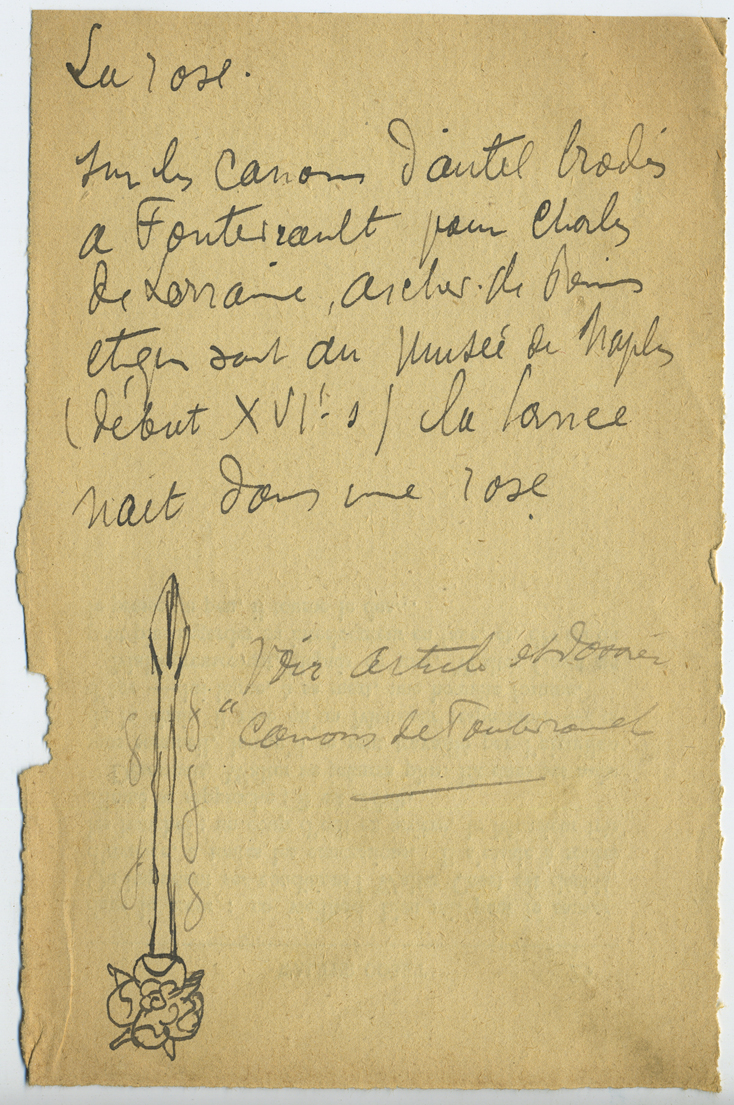 La rose.
sur les canons d'autel brodés
a Fontevrault pour Charles
de Lorraine, archev. de Reims
et qui sont au Musée de Naples
(début XVIe s) la lance
nait dans une rose
Voir article et dossier
"canons de Fontevrault